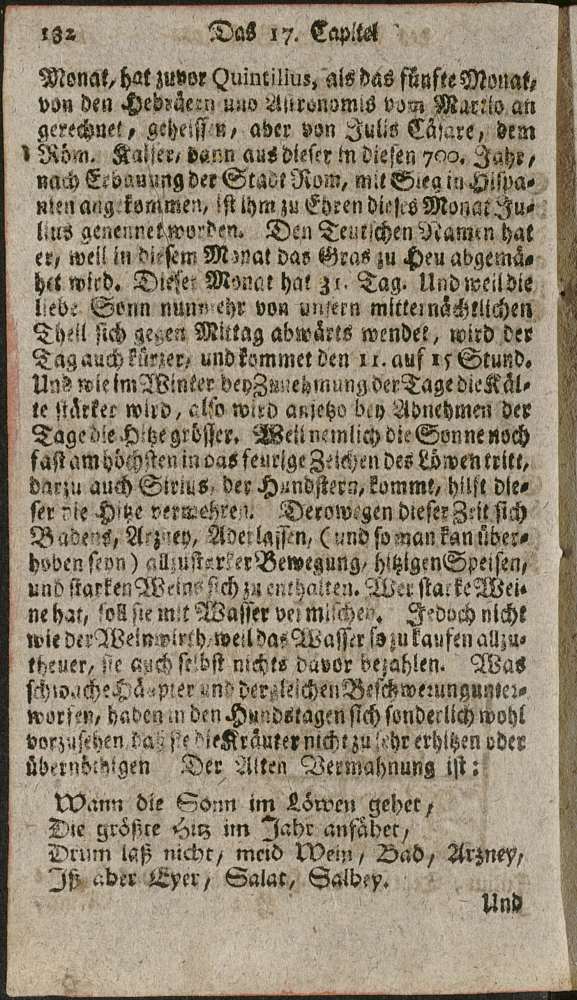 132 Das 17. Capitel
Monat, hat zuvor Quintilius, als das fünfte Monat,
von den Hebräern uno Astronomis vom Martio an
gerechnet, geheissen, aber von Julio Cäsare, dem
Röm. Kaiser, dann aus dieser in diesen 700. Jahr,
nach Erbauung der Stadt Rom, mit Sieg in Hispa-
nien angekommen, ist ihm zu Ehren dieses Monat Ju-
lius genennet worden. Den Teutschen Namen hat
er, weil in diesem Monat das Gras zu Heu abgemä-
het wird. Dieser Monat hat 31. Tag. Und weil die
liebe Sonn nunmehr von unsern mitternächtlichen
Theil sich gegen Mittag abwärts wendet, wird der
Tag auch kürzer, und kommet den 11. auf 15 Stund.
Und wie im Winter bey Zunehmung der Tage die Käl-
te stärker wird, also wird anjetzo bey Abnehmen der
Tage die Hitze grösser. Weil nemlich die Sonne noch
fast am höchsten in das feurige Zeichen des Löwen tritt,
darzu auch Sirius, der Hundstern, kommt, hilft die-
ser die Hitze vermehren. Derowegen dieser Zeit sich
Badens, Arzney, Aderlassen, (und so man kan über-
hoben seyn) allzustarker Bewegung, hitzigen Speisen,
und starken Weins sich zu enthalten. Wer starke Wei-
ne hat, soll sie mit Wasser vermischen. Jedoch nicht
wie der Weinwirth, weil das Wasser so zu kaufen allzu-
theuer, sie auch selbst nichts davor bezahlen. Was
schwache Häupter und dergleichen Beschwerung unter-
worfen, haben in den Hundstagen sich sonderlich wohl
vorzusehen, daß sie die Kräuter nicht zu sehr erhitzen oder
übernöthigen Der Alten Vermahnung ist:
Wann die Sonn im Löwen gehet,
Die größte Hitz im Jahr anfähet,
Drum laß nicht, meid Wein, Bad, Arzney,
Iß aber Eyer, Salat, Salbey.
Und